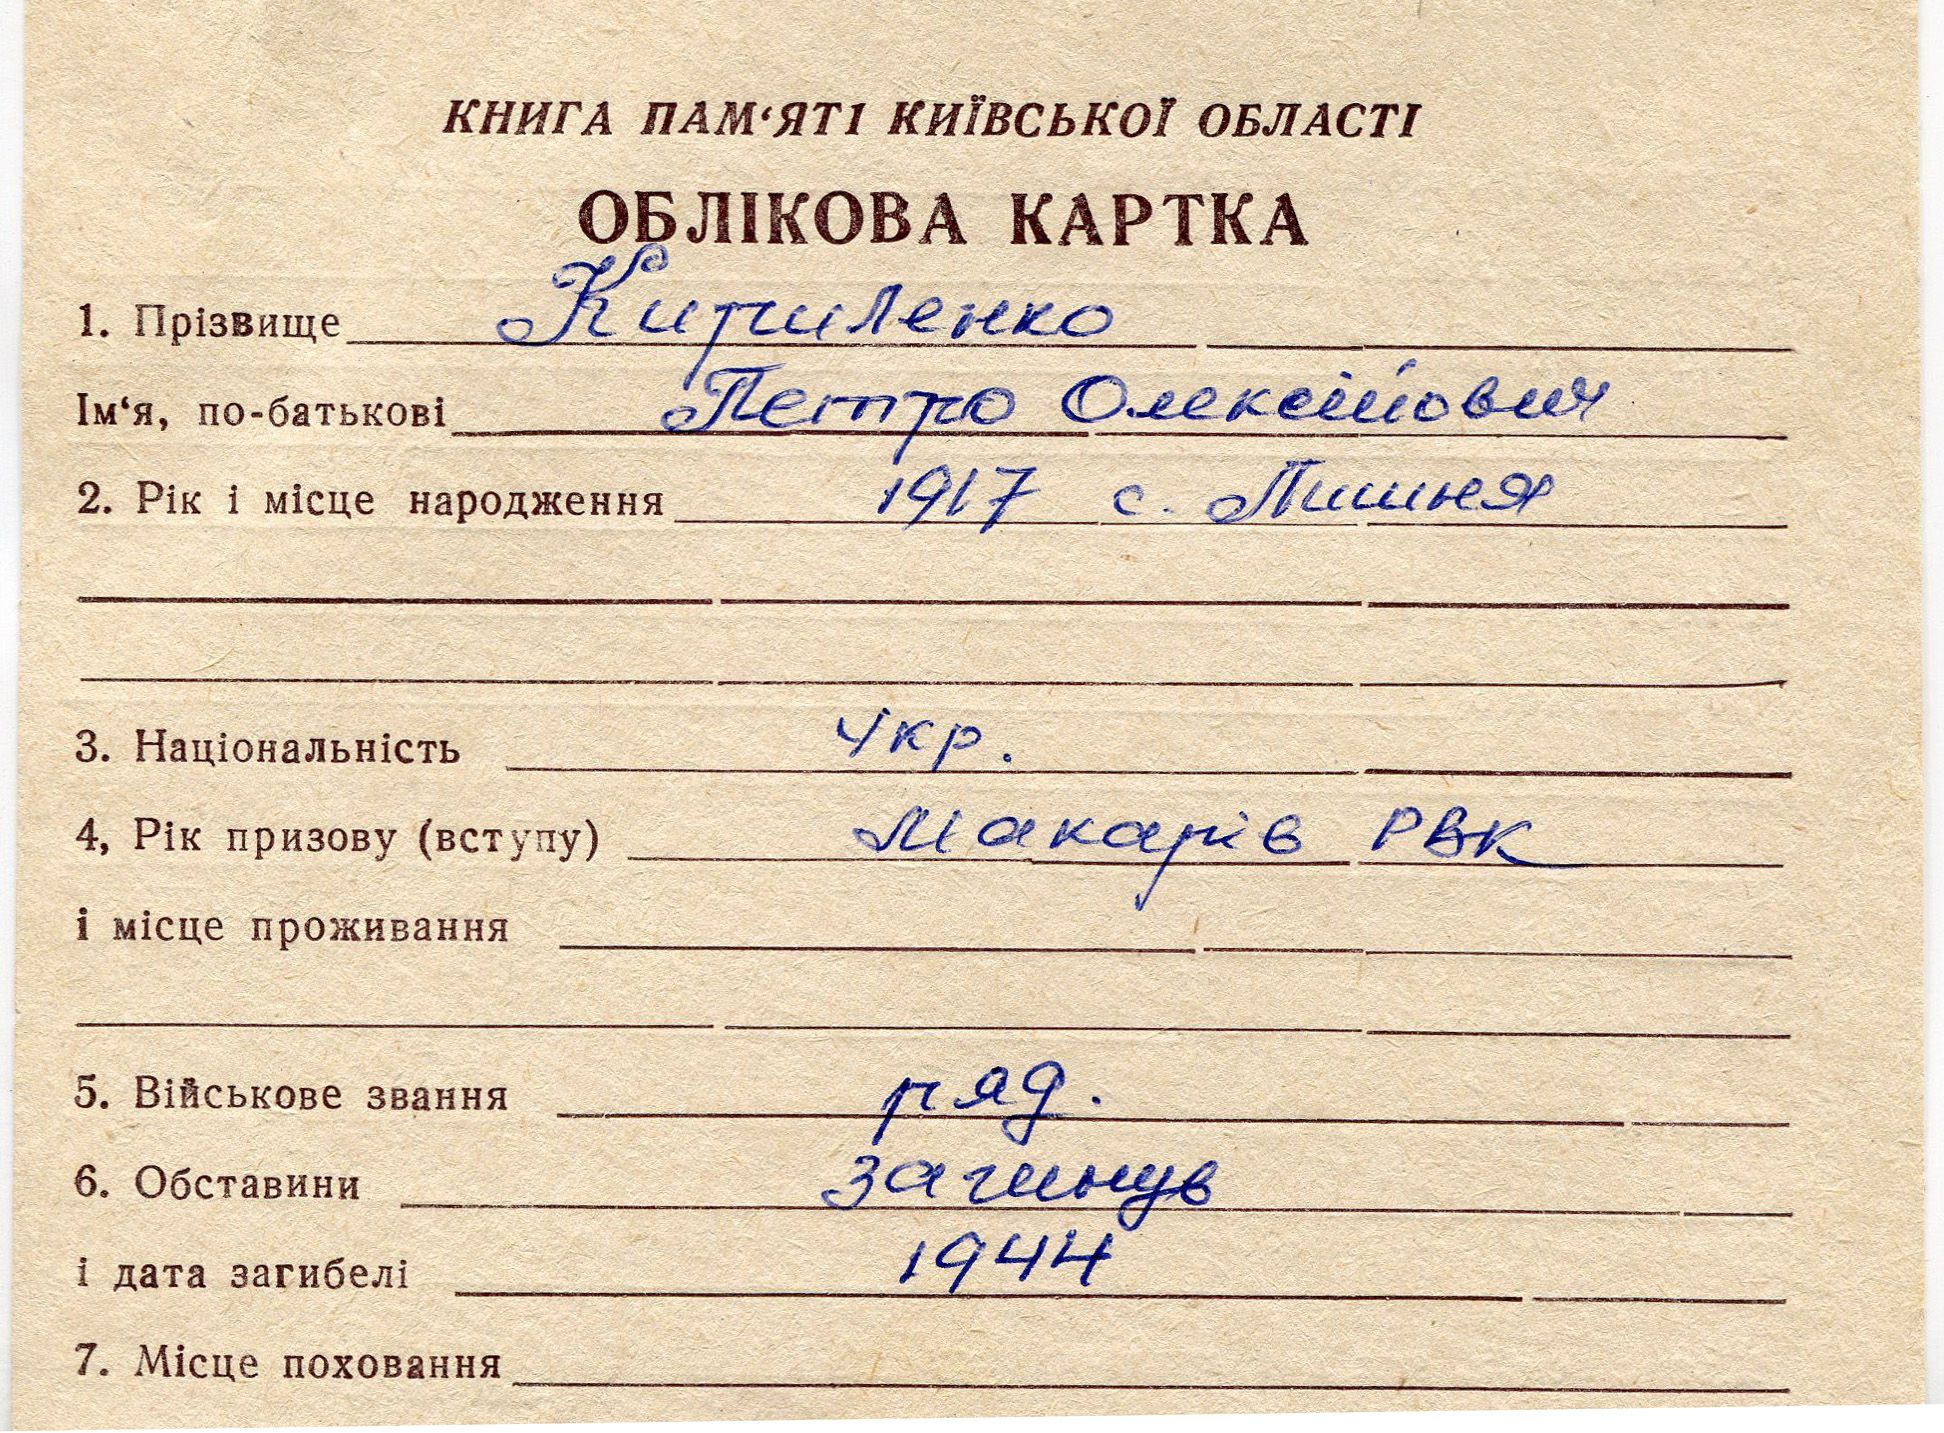 КНИГА ПАМ‘ЯТІ КИЇВСЬКОЇ ОБЛАСТІ
ОБЛІКОВА КАРТКА
1. Прізвище Кириленко
Ім‘я, по-батькові Петро Олексійович
2. Рік і місце народження 1917 с. Лишня
3. Національність Укр.
4, Рік призову (вступу) Макарів РВК
і місце проживання
5. Військове звання ряд.
6. Обставини загинув
і дата загибелі 1944
7. Місце поховання